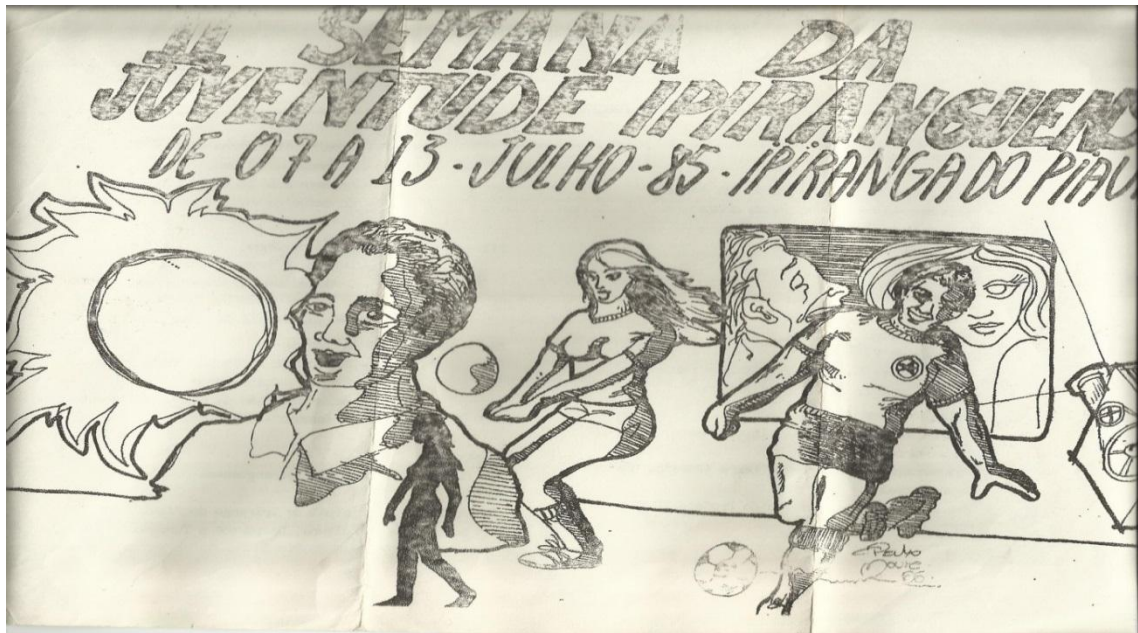 II SEMANA DA
JUVENTUDE IPIRANGUENS
DE 07 A 13 - JULHO - 85 - IPIRANGA DO PIAU